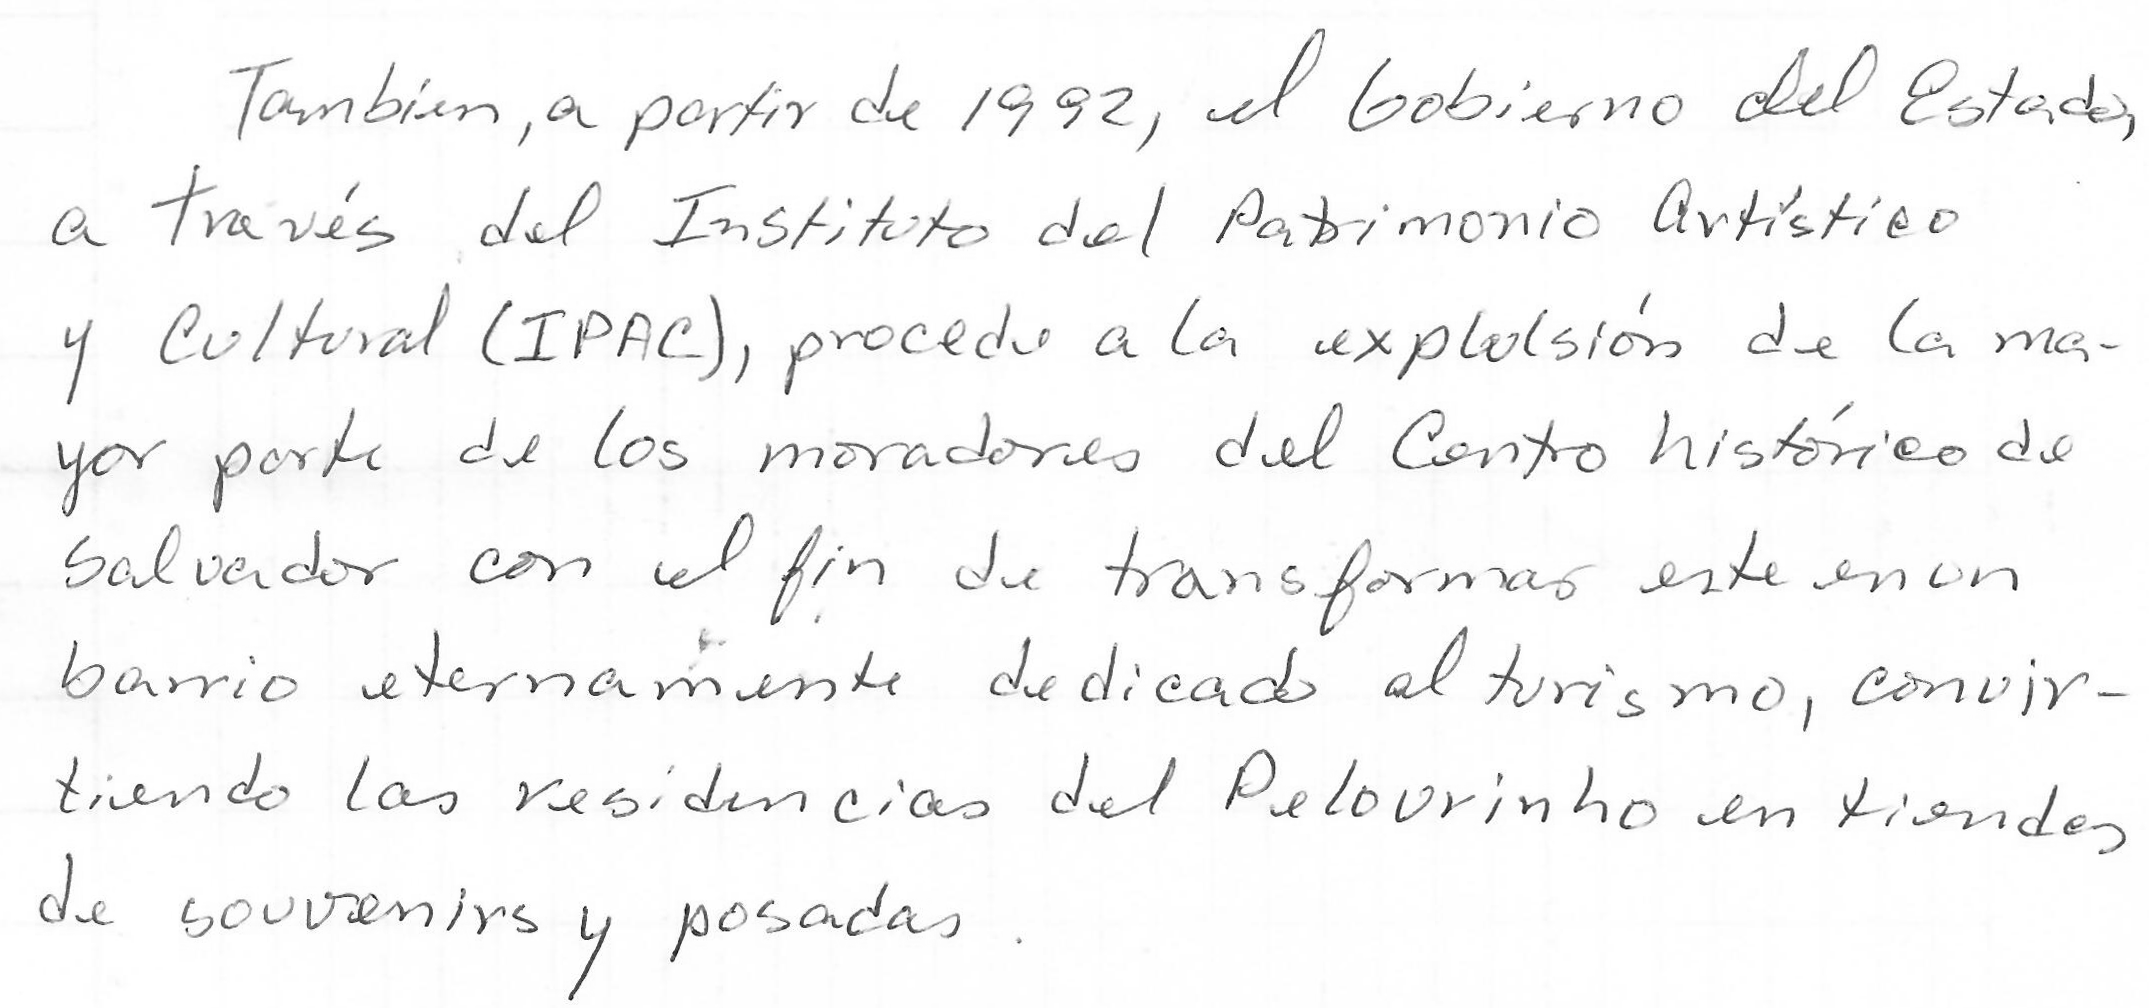 Tambien, a partir de 1992, el Gobierno del Estado,
a través del Instituto del Patrimonio Artístico
y Cultural (IPAC), procede a la explulsión de la ma-
yor parte de los moradores del Centro histórico de
Salvador con el fin de transformar este en un
barrio eternamente dedicado al turismo, convir-
tiendo las residencias del Pelourinho en tiendas
de souvenirs y posadas.